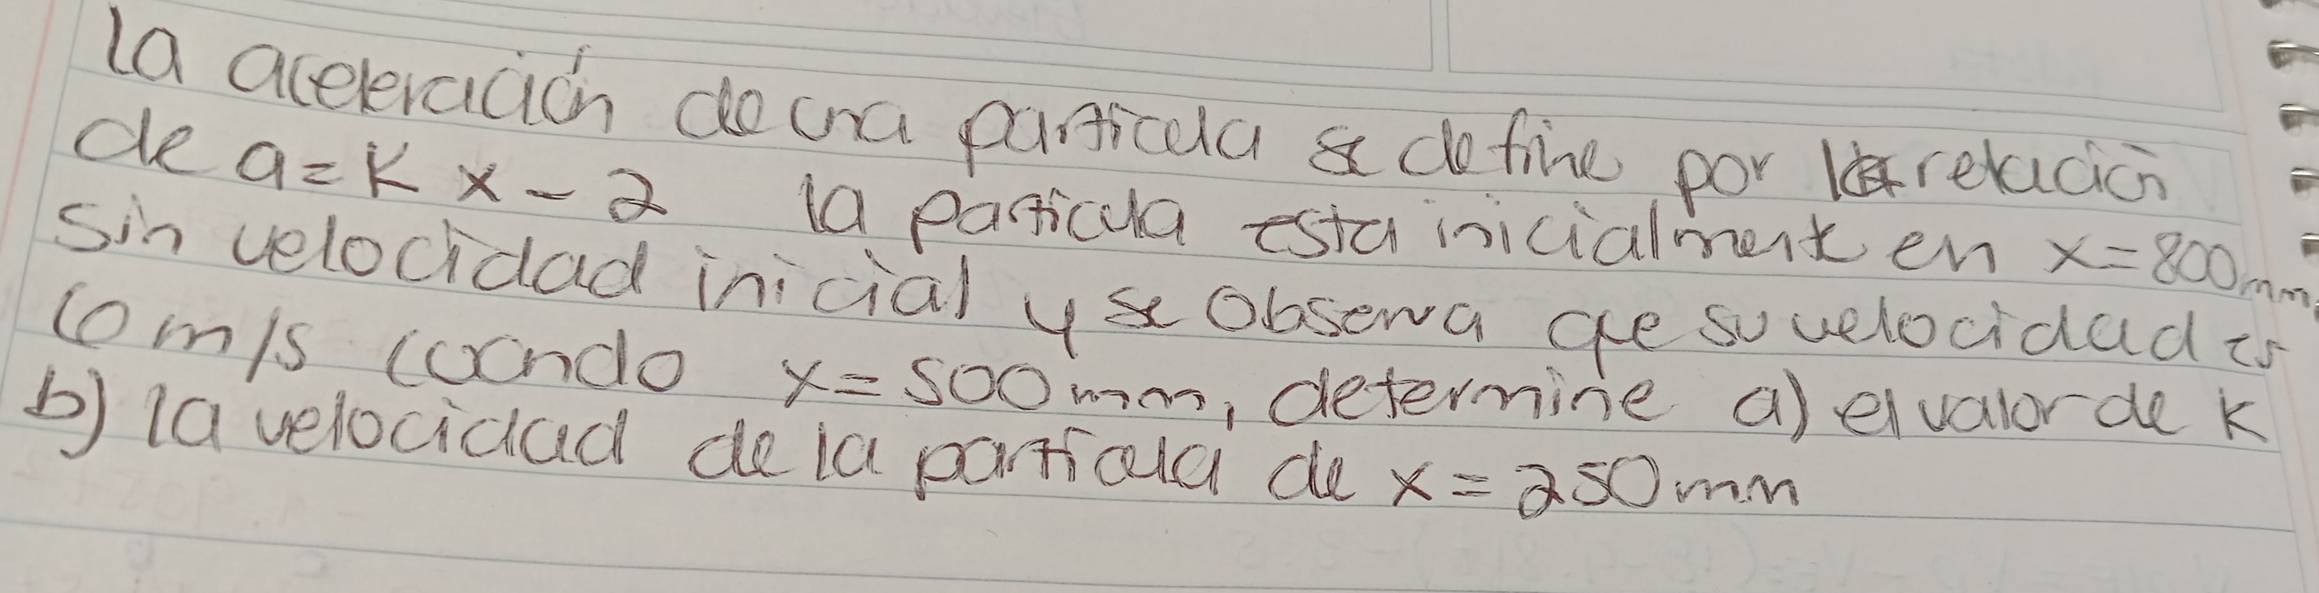 la aceleración de una particula se define por la relación
de a=K x-2 la particula esta inicialmente en x=800mm
sin velocidad inicial y se observa que su velocidad es
6 m/s cuando x=500mm, determine a) el valor de K
b) la velocidad de la particula de x=250mm